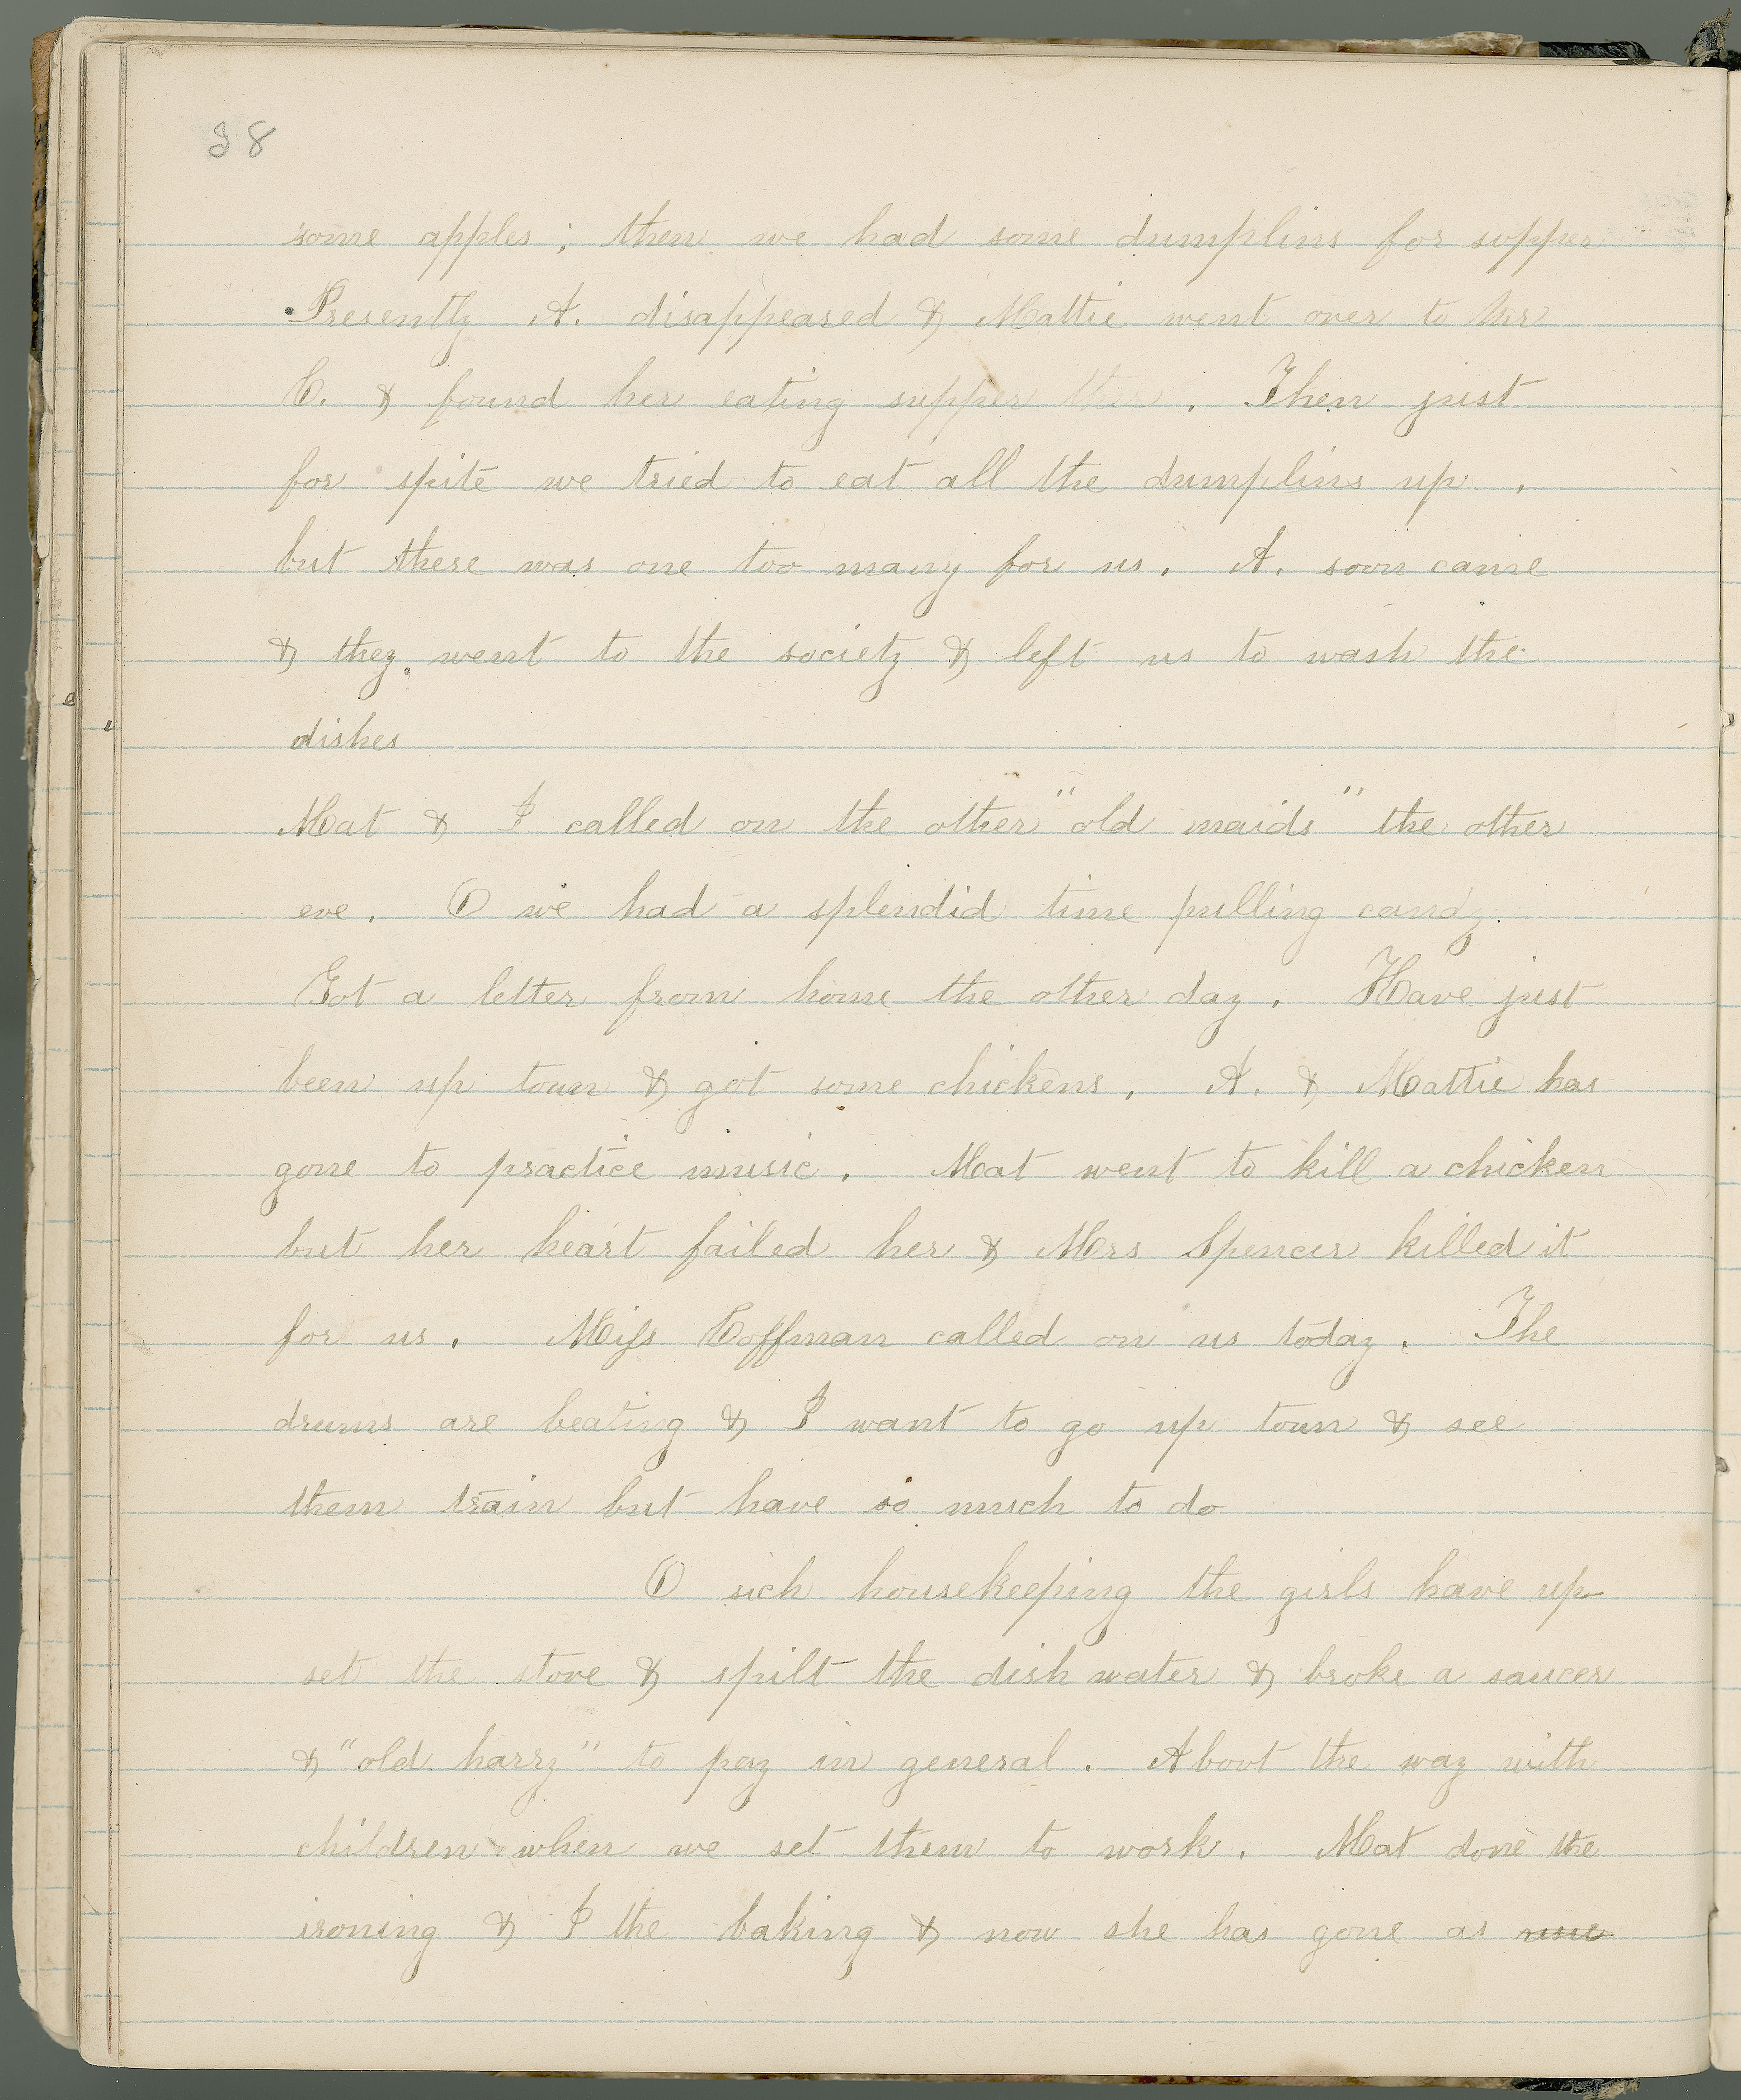 38
some apples; then we had some dumplins for supper
Presently A. disappeared & Mattie went over to Mrs
C. & found her eating supper there. Then just
for spite we tried to eat all the dumplins up.
but there was one too many for us. A. soon came
& they went to the society & left us to wash the
dishes
Mat & I called on the other "old maids" the other
eve. O we had a splendid time pulling candy.
Got a letter from home the other day. Have just
been up town & got some chickens. A. & Mattie has
gone to practice music. Mat went to kill a chicken
but her heart failed her & Mrs Spencer killed it
for us. Miss Coffman called on us today. The
drums are beating & I want to go up town & see
them train but have so much to do
O sich housekeeping the girls have up
set the stove & spilt the dish water & broke a saucer
& "old harry" to pay in general. About the way with
children when we set them to work. Mat done the
ironing & I the baking & now she has gone as